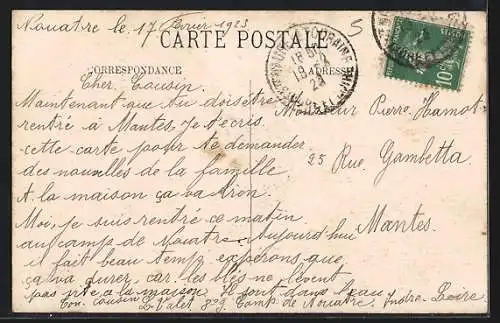 Nouatre le, 17 Février 1923
5
CARTE POSTALE
CORRESPONDANCE
ADRESSE
10c
Cher Cousin
Maintenant que tu dois être
rentré à Mantes, je t'ecris
cette carte pour te demander
des nouvelles de la famille
A la maison ça va bon.
Moi, je suis rentré ce matin
au camps de Nouatre. Aujourd'hui
il fait beau temp esperons que
ça va durer, car les blés ne lèvent
pas vite a la maison. Il sont dans l'eau.
Ton cousin L. Valet 8e g. Camp de Nouatre, Indre-Loire
Monsieur Pierre Hamot
25 Rue Gambetta
Mantes.